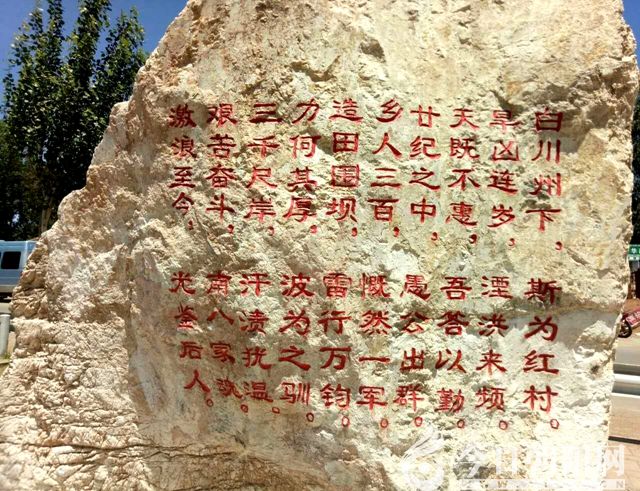 白川州下，斯为红村。
旱凶连岁，湮洪来烦。
天既不惠，吾答以勤。
廿纪之中，愚公出群。
乡人三百，慨然一军。
造田围坝，雷行万钧。
力何其厚，波为之驯。
三千尺岸，汗渍犹温。
艰苦奋斗，南八家
激浪至今，光鉴后人。
今日朝阳网